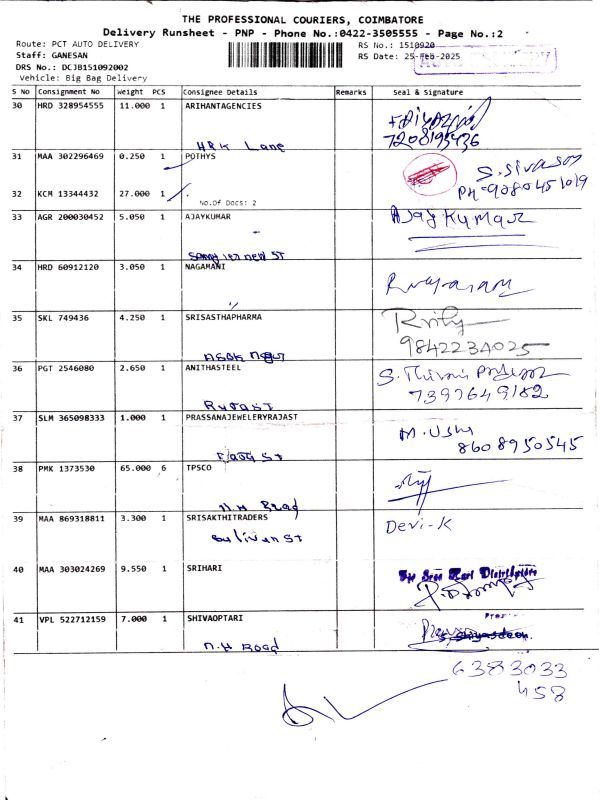 THE PROFESSIONAL COURIERS, COIMBATORE
Delivery Runsheet - PNP - Phone No.:0422-3505555 - Page No.:2
Route: PCT AUTO DELIVERY
Staff: GANESAN
DRS No.: DCJB151092002
Vehicle: Big Bag Delivery
RS No.: 1510920
RS Date: 25-Feb-2025
S No Consignment No Weight PCS Consignee Details Remarks Seal & Signature
30 HRD 328954555 11.000 1 ARIHANTAGENCIES
7208195436
H&K Lane
31 MAA 302296469 0.250 1 POTHYS
S. Sivason
PH-9080451019
32 KCM 13344432 27.000 1
No.Of Docs: 2
33 AGR 200030452 5.050 1 AJAYKUMAR AJay Kumar
new ST
34 HRD 60912120 3.050 1 NAGAMANI
35 SKL 749436 4.250 1 SRISASTHAPHARMA
9842234025
36 PGT 2546080 2.650 1 ANITHASTEEL
7397649182
37 SLM 365098333 1.000 1 PRASSANAJEWELERYRAJAST
M. Usha
8608950545
38 PMK 1373530 65.000 6 TPSCO
N.H Road
39 MAA 869318811 3.300 1 SRISAKTHITRADERS Devi-K
Sulivan ST
40 MAA 303024269 9.550 1 SRIHARI For Sree Hari Distributors
41 VPL 522712159 7.000 1 SHIVAOPTARI
N.H Road
6383033
458